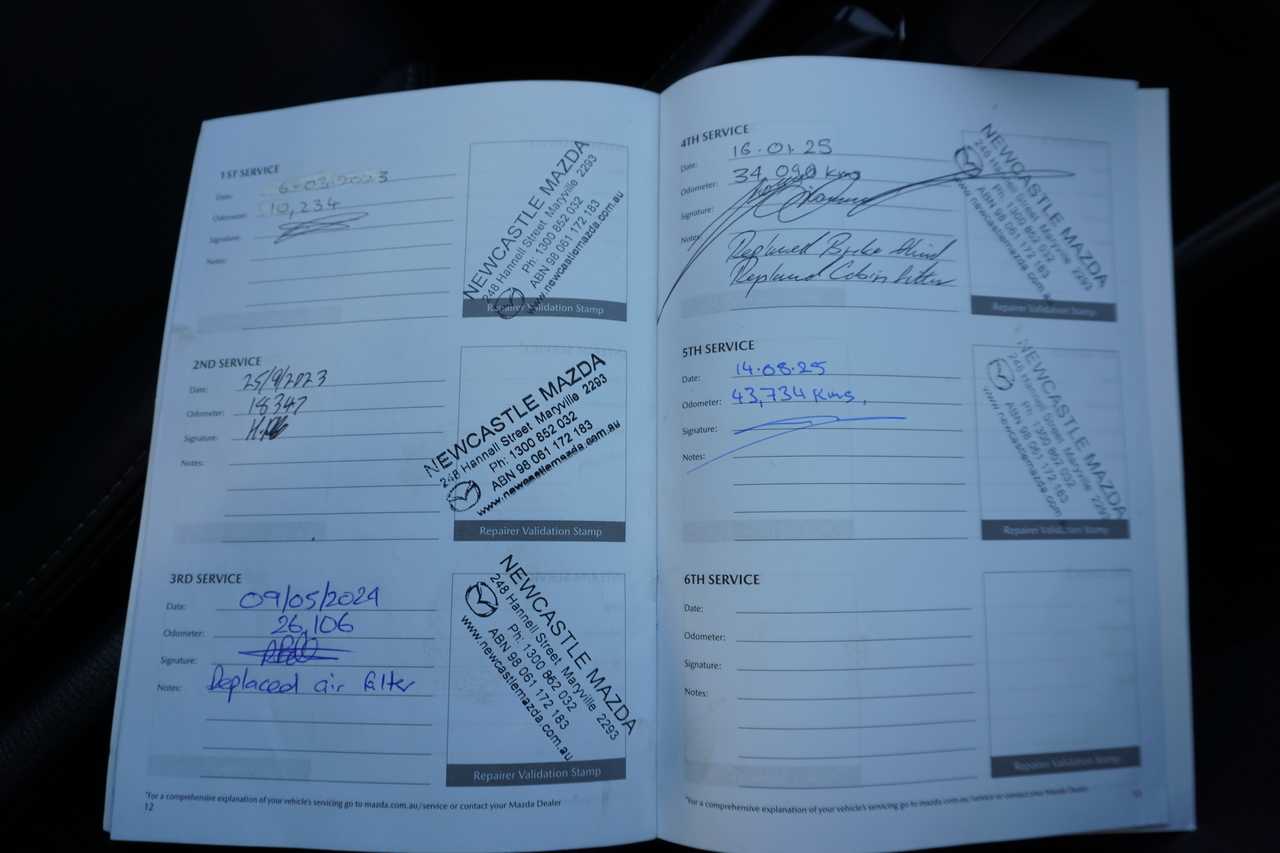 1ST SERVICE
Date: 6-03-2023
Odometer: 10,234
Signature:
Notes:
NEWCASTLE MAZDA
248 Hannell Street Maryville 2293
Ph: 1300 852 032
ABN 98 061 172 183
www.newcastlemazda.com.au
Repairer Validation Stamp
2ND SERVICE
Date: 25/9/2023
Odometer: 18347
Signature:
Notes:
NEWCASTLE MAZDA
248 Hannell Street Maryville 2293
Ph: 1300 852 032
ABN 98 061 172 183
www.newcastlemazda.com.au
Repairer Validation Stamp
3RD SERVICE
Date: 09/05/2024
Odometer: 26,106
Signature:
Notes: Replaced air filter
NEWCASTLE MAZDA
248 Hannell Street Maryville 2293
Ph: 1300 862 032
ABN 98 061 172 183
www.newcastlemazda.com.au
Repairer Validation Stamp
*For a comprehensive explanation of your vehicle's servicing go to mazda.com.au/service or contact your Mazda Dealer
12
4TH SERVICE
Date: 16.01.25
Odometer: 34,090 Kms
Signature:
Notes:
Replaced Brake fluid
Replaced Cabin filter
NEWCASTLE MAZDA
248 Hannell Street Maryville 2293
Ph: 1300 852 032
ABN 98 061 172 183
www.newcastlemazda.com.au
Repairer Validation Stamp
5TH SERVICE
Date: 14.08.25
Odometer: 43,734 Kms,
Signature:
Notes:
NEWCASTLE MAZDA
248 Hannell Street Maryville 2293
Ph: 1300 852 032
ABN 98 061 172 183
www.newcastlemazda.com
Repairer Validation Stamp
6TH SERVICE
Date:
Odometer:
Signature:
Notes:
Repairer Validation Stamp
*For a comprehensive explanation of your vehicle's servicing go to mazda.com.au/service or contact your Mazda Dealer